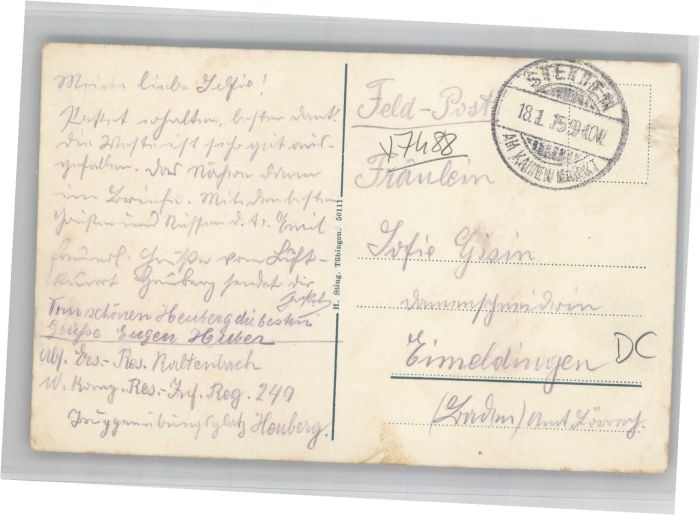 Meine liebe Sofie!
Paket erhalten, besten Dank!
Die Weste ist sehr gut aus-
gefallen. Das Nähere dann
im Briefe. Mit den besten
Grüßen und Küssen d. tr. Emil
Freundl. Grüße vom Luft-
kurort Heuberg sendet dir
Vom schönen Heuberg die besten
Grüße Eugen Huber
Abs. Ers.-Res. Kaltenbach
Komp. Res.-Inf. Reg. 249
Truppenübungsplatz Heuberg.
H. Sting. Tübingen. 50111
STETTEN
18.1.15 9-10V.
AM KALTEN MARKT
Feld-Post
17488
Fräulein
Sofie Gisin
Damenschneiderin
Eimeldingen
DC
(Baden) Amt Lörrach.